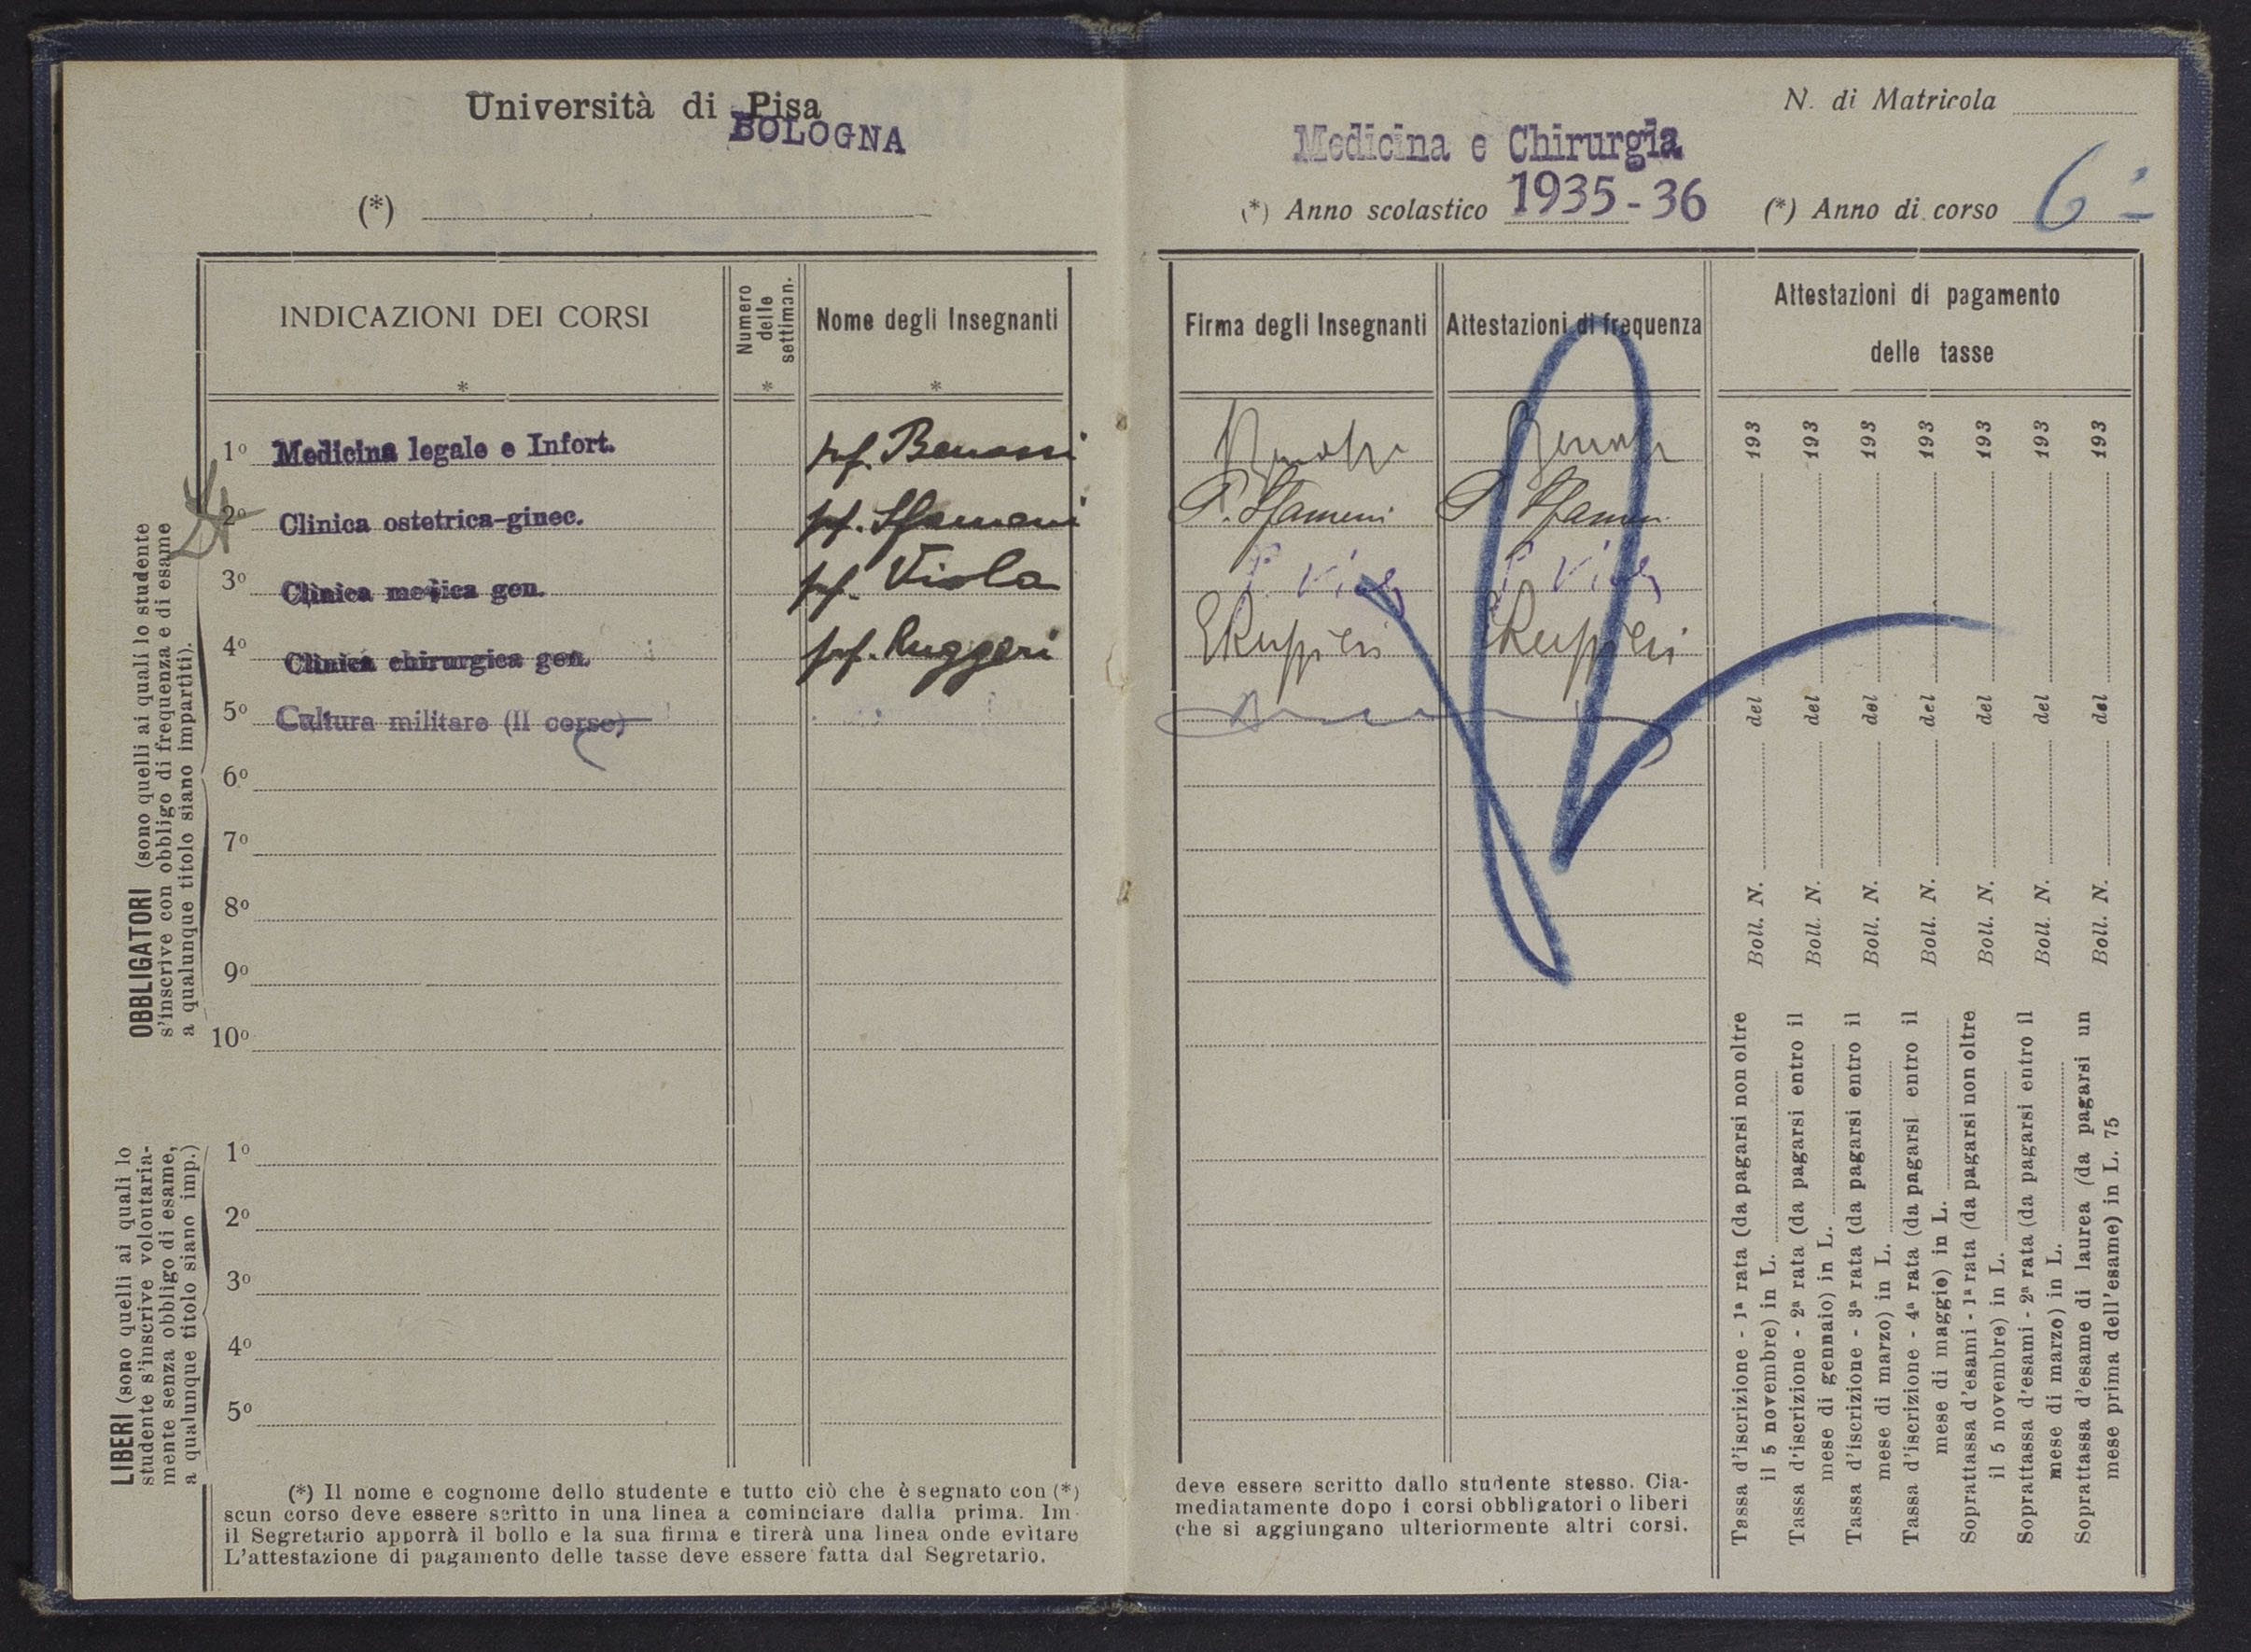 Università di Pisa
BOLOGNA
(*)
INDICAZIONI DEI CORSI
*
Numero
delle
settiman.
*
Nome degli Insegnanti
*
OBBLIGATORI (sono quelli ai quali lo studente
s'inscrive con obbligo di frequenza e di esame
a qualunque titolo siano impartiti).
1º Medicina legale e Infort. prf. Benassi
2º Clinica ostetrica-ginec. prf. Sfameni
3º Clinica medica gen. prf. Viola
4º Clinica chirurgica gen. prf. Ruggeri
5º Cultura militare (II corso)
6º
7º
8º
9º
10º
LIBERI (sono quelli ai quali lo
studente s'inscrive volontaria-
mente senza obbligo di esame,
a qualunque titolo siano imp.)
1º
2º
3º
4º
5º
(*) Il nome e cognome dello studente e tutto ciò che è segnato con (*)
scun corso deve essere scritto in una linea a cominciare dalla prima. Im-
il Segretario apporrà il bollo e la sua firma e tirerà una linea onde evitare
L'attestazione di pagamento delle tasse deve essere fatta dal Segretario.
N. di Matricola
Medicina e Chirurgia
(*) Anno scolastico 1935-36 (*) Anno di corso 6º
Firma degli Insegnanti
Attestazioni di frequenza
Attestazioni di pagamento
delle tasse
Benassi Benassi
P. Sfameni P. Sfameni
Viola Viola
E Ruggieri E Ruggieri
Tassa d'iscrizione - 1ª rata (da pagarsi non oltre
il 5 novembre) in L.
Boll. N. del 193
Tassa d'iscrizione - 2ª rata (da pagarsi entro il
mese di gennaio) in L.
Boll. N. del 193
Tassa d'iscrizione - 3ª rata (da pagarsi entro il
mese di marzo) in L.
Boll. N. del 193
Tassa d'iscrizione - 4ª rata (da pagarsi entro il
mese di maggio) in L.
Boll. N. del 193
Soprattassa d'esami - 1ª rata (da pagarsi non oltre
il 5 novembre) in L.
Boll. N. del 193
Soprattassa d'esami - 2ª rata (da pagarsi entro il
mese di marzo) in L.
Boll. N. del 193
Soprattassa d'esame di laurea (da pagarsi un
mese prima dell'esame) in L. 75
Boll. N. del 193
deve essere scritto dallo studente stesso. Cia-
mediatamente dopo i corsi obbligatori o liberi
che si aggiungano ulteriormente altri corsi.